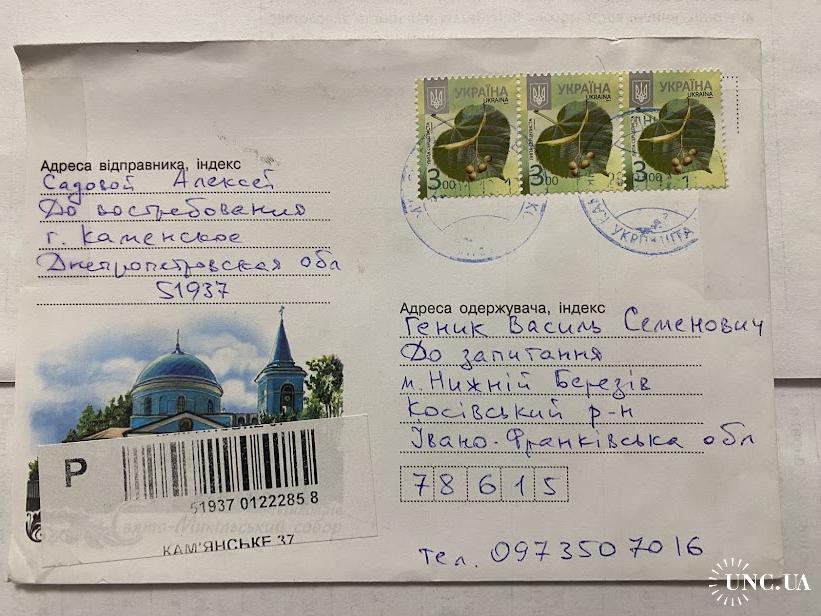 УКРАЇНА
UKRAINA
3.00
УКРАЇНА
UKRAINA
3.00
УКРАЇНА
UKRAINA
3.00
УКРПОШТА
Адреса відправника, індекс
Садовой Алексей
До востребования
г. Каменское
Днепропетровская обл
51937
Адреса одержувача, індекс
Геник Василь Семенович
До запитання
м. Нижній Березів
Косівський р-н
Івано-Франківська обл
78615
тел. 0973507016
P
51937 0122285 8
Свято-Миколаївський собор
КАМ'ЯНСЬКЕ 37
UNC.UA